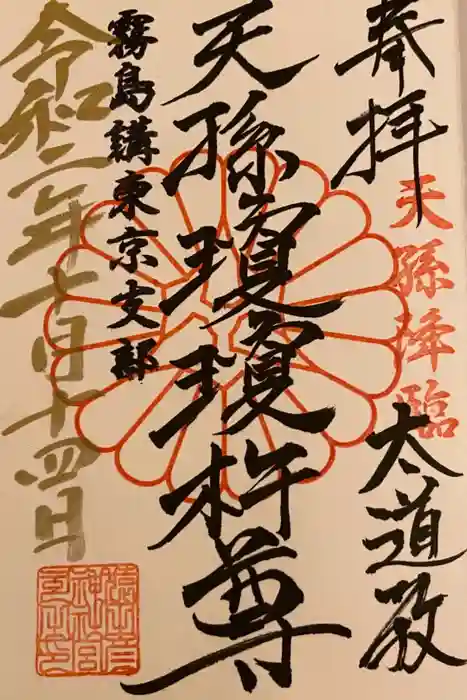 奉拝
天孫降臨
大道教
天孫瓊瓊杵尊
霧島講東京支部
令和二年十月十四日